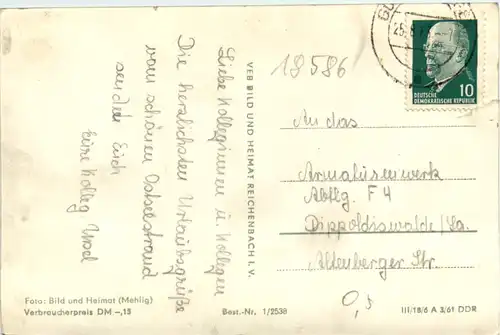 Liebe Kolleginnen u. Kollegen
Die herzlichsten Urlaubsgrüße
vom schönen Ostseestrand
sendet Euch
Eure Kolleg. Ursel
Foto: Bild und Heimat (Mehlig)
Verbraucherpreis DM -,15
VEB BILD UND HEIMAT REICHENBACH I. V.
Best.-Nr. 1/2538
18586
10
DEUTSCHE
DEMOKRATISCHE REPUBLIK
An das
Armaturenwerk
Abtlg. F 4
Dippoldiswalde/Sa.
Altenberger Str.
0,5
III/18/6 A 3/61 DDR